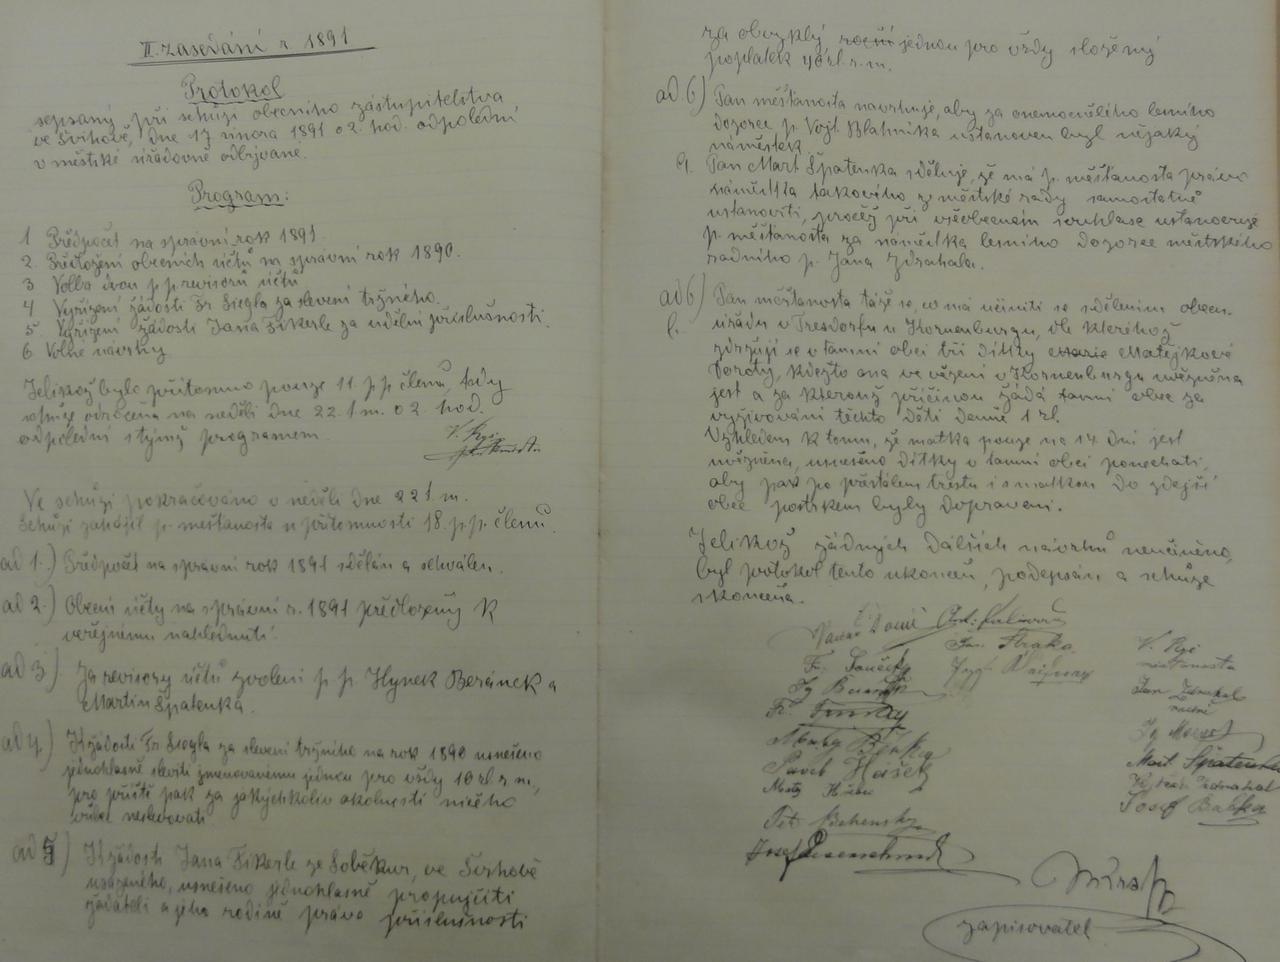 II. zasedání r. 1891
Protokol
sepsaný při schůzi obecního zástupitelstva
ve Švihově, dne 17 února 1891 o 2. hod. odpolední
v městské úřadovně odbývané.
Program:
1 Předpočet na správní rok 1891.
2. Předložení obecních účtů na správní rok 1890.
3 Volba dvou p.p. revisorů účtů
4 Vyřízení žádosti Fr. Siegla za slevení tržného.
5. Vyřízení žádosti Jana Fikerle za udělení příslušnosti.
6 Volné návrhy
Jelikož bylo přítomno pouze 11. p.p. členů, tedy
schůze odročena na neděli dne 22. t. m. o 2. hod.
odpolední s týmž programem.
Ve schůzi pokračováno v neděli dne 22 t. m.
Schůzi zahájil p. měšťanosta u přítomnosti 18. p.p. členů.
ad 1.) Předpočet na správní rok 1891 sdělán a schválen.
ad 2.) Obecní účty na správní r. 1891 předloženy k
veřejnému nahlédnutí.
ad 3) Za revisory účtů zvoleni p. p. Hynek Beránek a
Martin Špatenka.
ad 4) K žádosti Fr Siegla za slevení tržního na rok 1890 usnešeno
jednohlasně sleviti jmenovanému jednou pro vždy 10 zl. r. m.,
pro příště pak za jakýchkoliv okolností ničeho
více neslevovati.
ad 5) K žádosti Jana Fikerle ze Soběkur, ve Švihově
usazeného, usnešeno jednohlasně propůjčiti
žádateli a jeho rodině právo příslušnosti
za obvyklý roční jednou pro vždy složený
poplatek 40 zl. r. m.
ad. 6) Pan měšťanosta navrhuje, aby za onemocnělého lesního
dozorce p. Vojt. Blahníka ustanoven byl nějaký
náměstek.
Pan Mart Špatenka sděluje, že má p. měšťanosta právo
náměstka takového ze městské rady samostatně
ustanoviti, pročež při všeobecném souhlase ustanovuje
p. měšťanosta za náměstka lesního dozorce městského
radního p. Jana Zdrahala.
ad 6) Pan měšťanosta táže se, co má učiniti se sdělením obecn.
úřadu v Tresdorfu u Kornenburgu, dle kteréhož
zdržují se v tamní obci tři dítky Marie Matějkové
Doroty, kdežto ona ve vězení v Kornenburgu uvězněna
jest a za kterouž příčinou žádá tamní obec za
vyživování těchto dětí denně 1 zl.
Vzhledem k tomu, že matka pouze na 14 dní jest
uvězněna, usnešeno dítky v tamní obci ponechati,
aby pak po přestálém trestu i s matkou do zdejší
obce postrkem byly dopraveni.
Jelikož žádných dalších návrhů neučiněno,
byl protokol tento ukončen, podepsán a schůze
skončena.
Jan Straka
měšťanosta
Jan Zdrahal
radní
Mart. Špatenka
Pavel Hášek
Josef Babka
zapisovatel